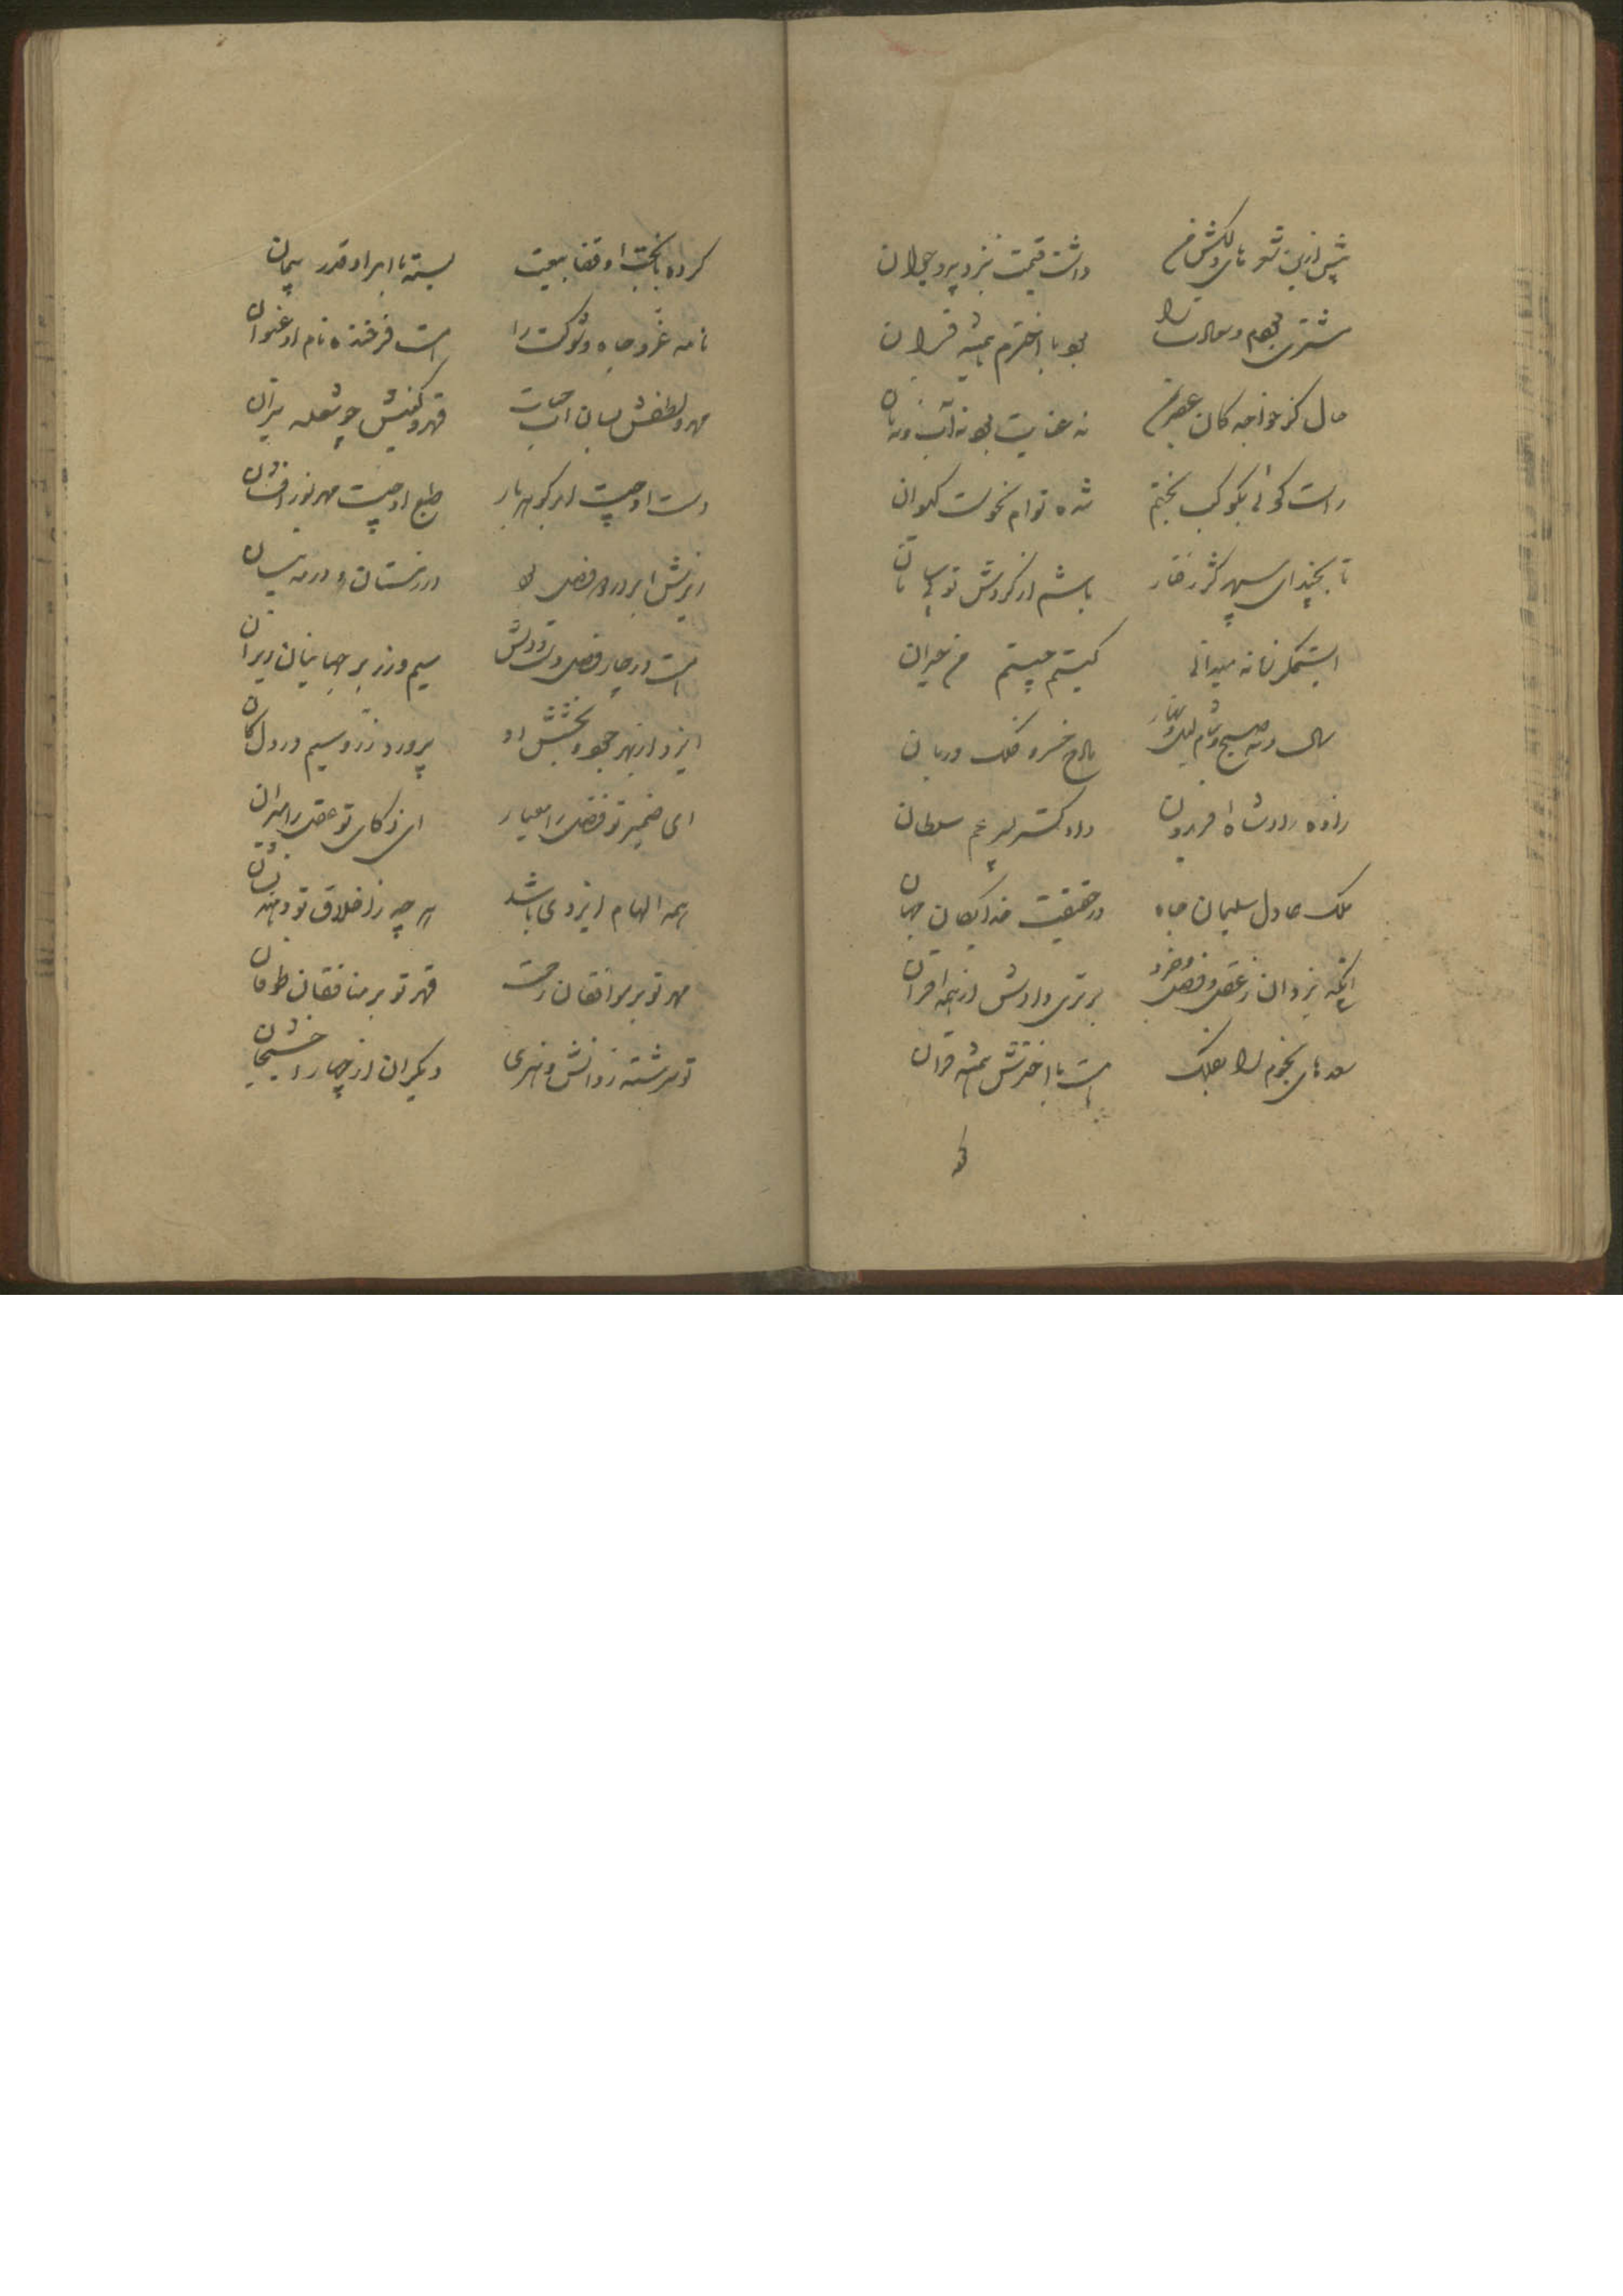 پیش ازین شعرهای دلکش من داشت قیمت بنزد پیر و جوان
مشتری بودم و سعادت را بود با اخترم همیشه قران
حال کز خواجه کان عصر مرا نه عنایت بود نه آب و نه نان
راست گوئی بکوکب بختم شده توام نحوست کیوان
تا بچند ای سپهر کژ رفتار باشم از گردش تو بی سامان
ای ستمگر زمانه میدانی کیستم چیستم من حیران
سال و مه صبح و شام لیل و نهار مادح خسرو فلک دربان
زاده راد شاه افریدون دادگستر امیر سلطان
ملک عادل سلیمان جاه در حقیقت خدایگان جهان
آنکه یزدان ز عقل و فضل و خرد برتری دادش از همه اقران
سعدهای نجوم را بفلک هست با اخترش همیشه قران
کرده با بخت او قضا بیعت بسته با امر او قدر پیمان
نامه عز و جاه و شوکت را هست فرخنده نام او عنوان
مهر و لطفش بسان آب حیات قهر و کینش چو شعله نیران
دست او چیست ابر گوهر بار طبع او چیست مهر نور افشان
ریزش ابر در دو فصل بود در زمستان و در مه نیسان
هست در چار فصل دست و دلش سیم و زر بر جهانیان ریزان
ایزد از بهر جود و بخشش او پرورد زر و سیم در دل کان
ای ضمیر تو فضل را معیار ای ذکای تو عقل را میزان
همه الهام ایزدی باشد هر چه ز اخلاق تو دهند نشان
مهر تو بر موافقان رحمت قهر تو بر منافقان طوفان
تو سرشته ز دانش و هنری دیگران از چهار اخشیجان